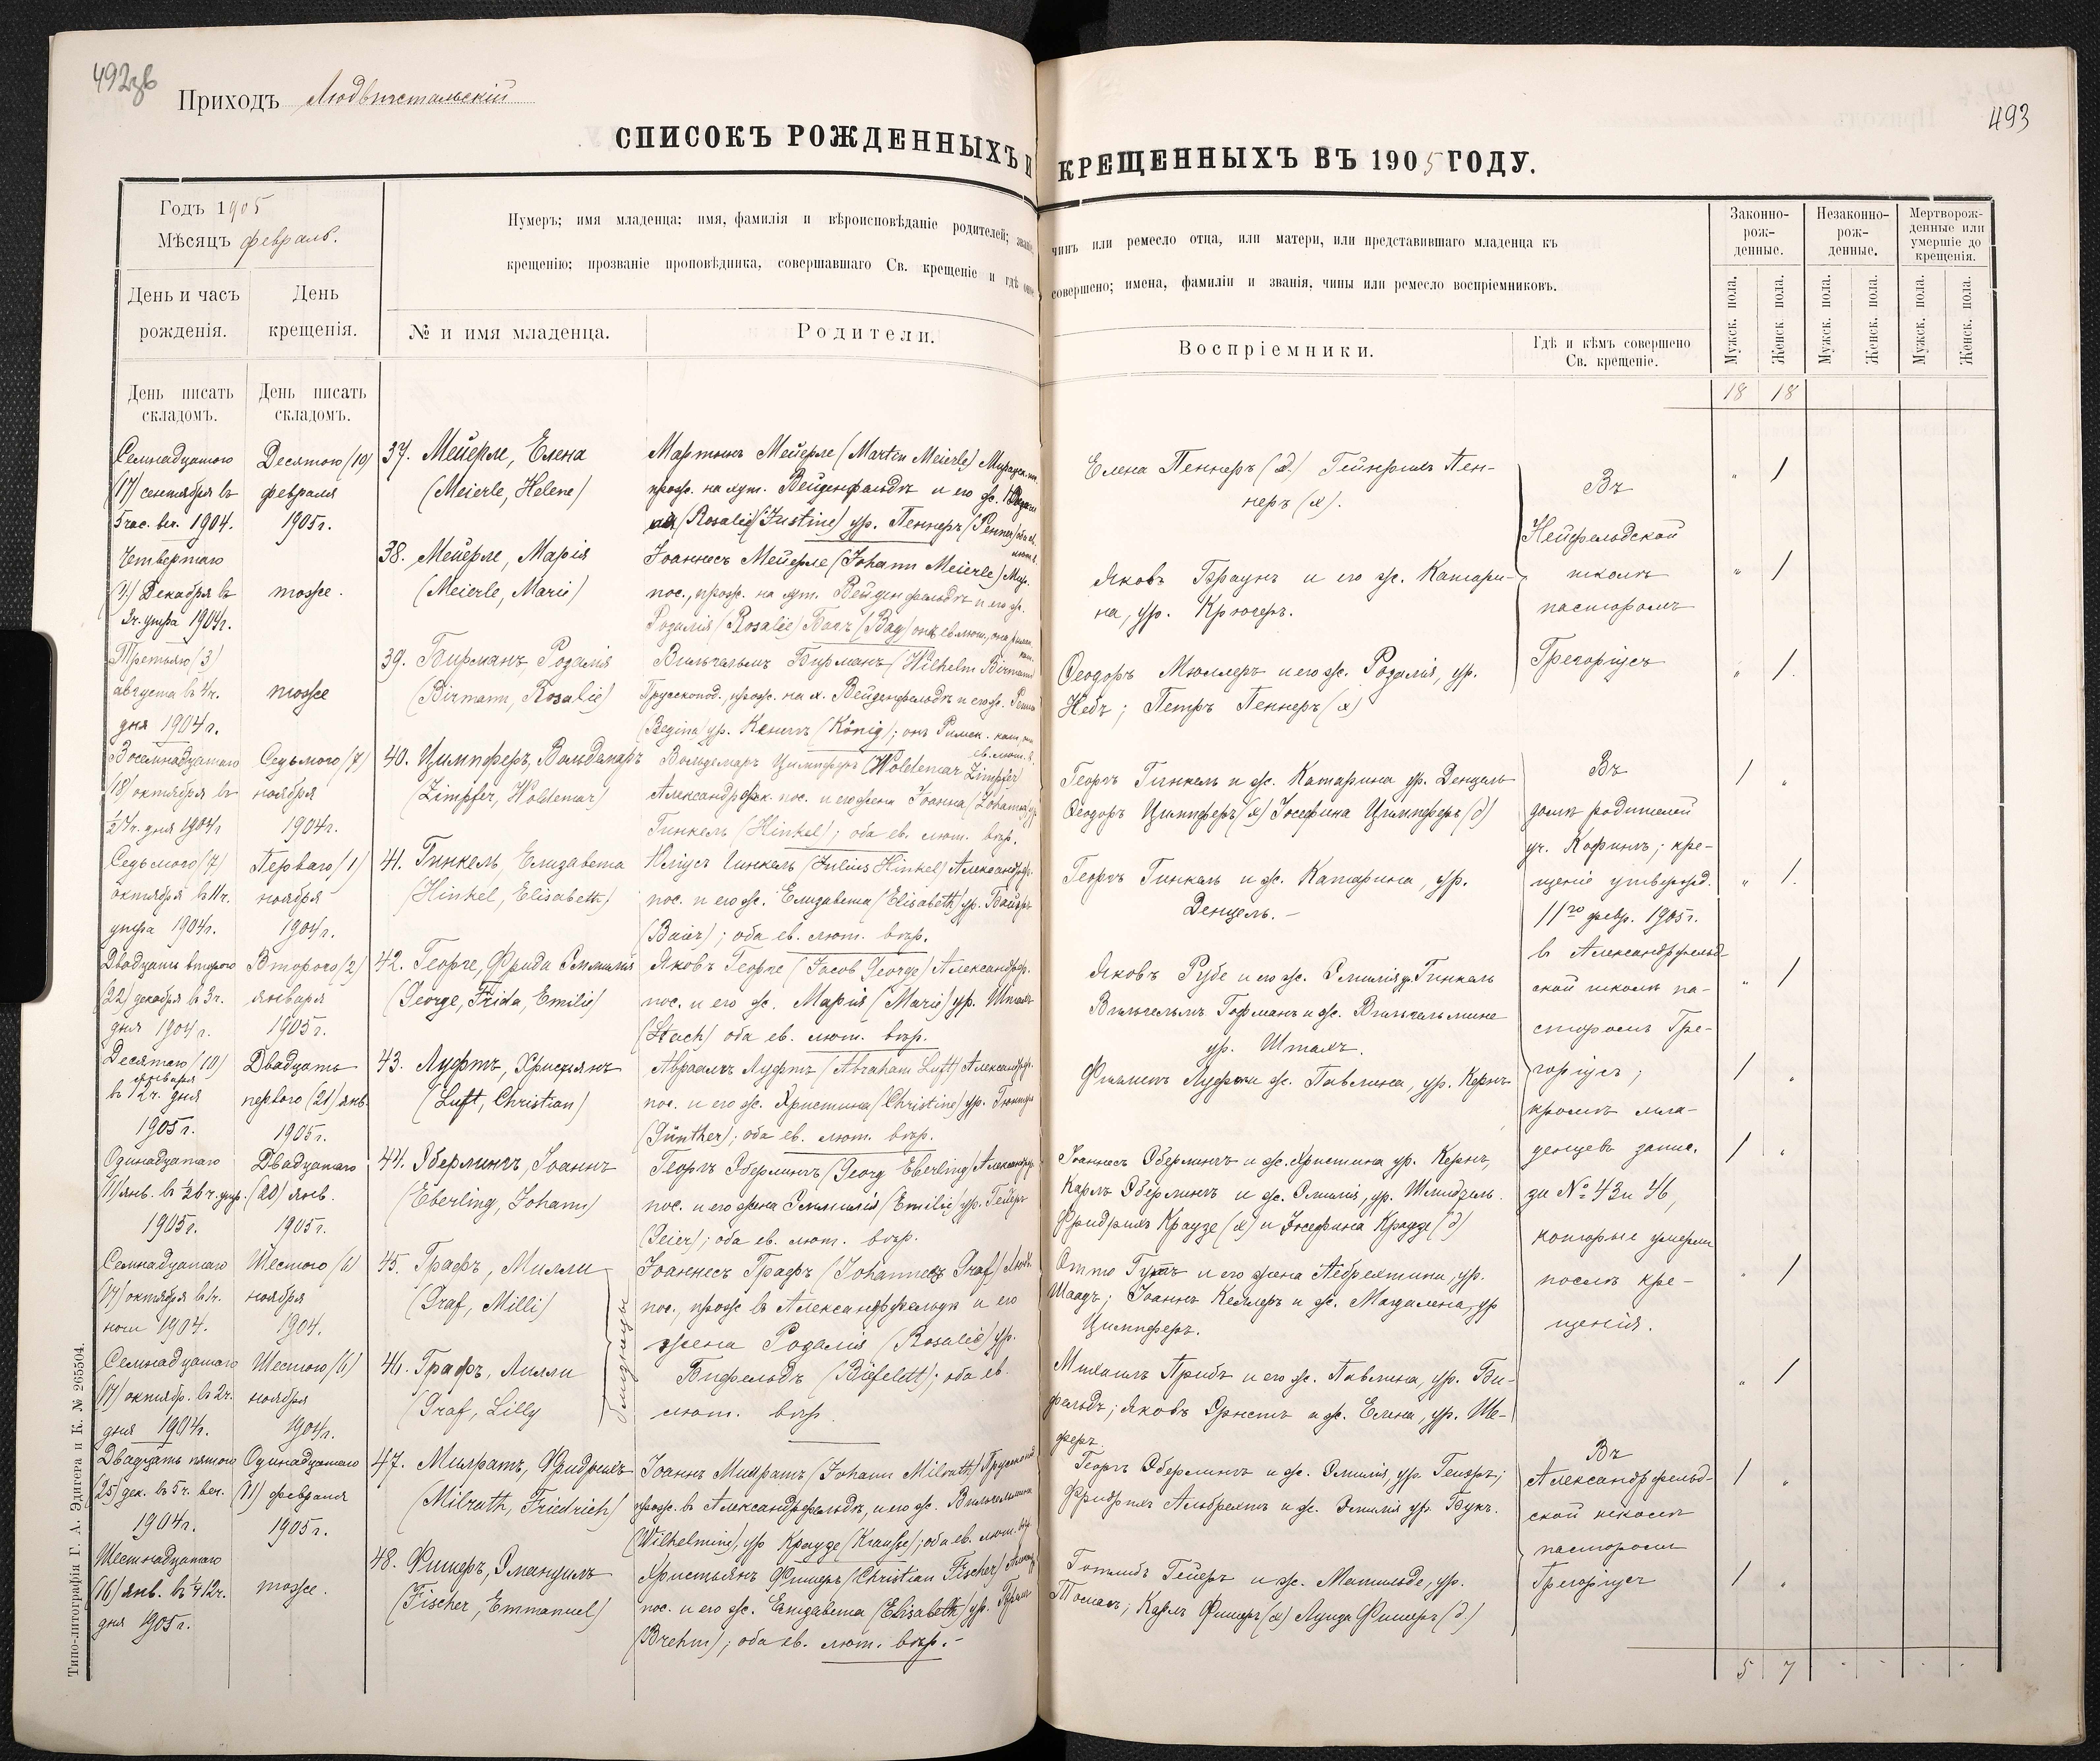 492
Приходъ Людвигстальскій
СПИСОКЪ РОЖДЕННЫХЪ И
Годъ 1905
Мѣсяцъ февраль.
День и часъ рожденія.
День крещенія.
Нумеръ; имя младенца; имя, фамилія и вѣроисповѣданіе родителей;
крещенію; прозваніе проповѣдника, совершавшаго Св. крещеніе и гдѣ
№ и имя младенца.
Родители.
День писать складомъ.
День писать складомъ.
Семнадцатаго
(17) сентября въ
5 час. веч. 1904.
Десятого (10)
февраля
1905 г.
37. Мейерле, Елена
(Meierle, Helene)
Мартинъ Мейерле (Martin Meierle)
прож. на хут. Вейденфельдъ и его ж.
(Rosalie) (Justine) ур. Пеннеръ (Penner)
Четвертаго
Декабря въ
3 ч. утра 1904 г.
тоже.
38. Мейерле, Марія
(Meierle, Marie)
Іоаннесъ Мейерле (Johann Meierle)
пос., прож. на хут. Вейденфельдъ и его ж.
Розалія (Rosalie)
Третьяго (3)
августа въ 4 ч.
дня 1904 г.
тоже
39. Бирманъ, Розалія
(Birmann, Rosalie)
Вильгельмъ Бирманъ (Wilhelm Birmann)
Прусскопод., прож. на х. Вейденфельдъ и его ж.
(Regina) ур. Кенигъ (König); онъ Римск. кат.
ев. лют. в.
Восемнадцатаго
(18) октября въ
1/2 4 ч. дня 1904 г.
Седьмого (7)
ноября
1904 г.
40. Цимпферъ, Вольдемаръ
(Zimpfer, Woldemar)
Вольдемаръ Цимпферъ (Woldemar Zimpfer)
Александрфск. пос. и его жена Іоанна (Johanna) ур.
Гинкель (Hinkel); оба ев. лют. вѣр.
Седьмого (7)
октября въ 11 ч.
утра 1904 г.
Перваго (1)
ноября
1904 г.
41. Гинкель, Елизавета
(Hinkel, Elisabeth)
Юліусъ Гинкель (Julius Hinkel) Александрф.
пос. и его ж. Елизавета (Elisabeth) ур. Байеръ
(Baier); оба ев. лют. вѣр.
Двадцать второго
(22) декабря въ 3 ч.
дня 1904 г.
Второго (2)
января
1905 г.
42. Георге, Фрида Эмилія
(George, Frida, Emilie)
Яковъ Георге (Jacob George) Александрф.
пос. и его ж. Марія (Marie) ур. Штахъ
(Stach) оба ев. лют. вѣр.
Десятаго (10)
января
въ 12 ч. дня
1905 г.
Двадцать
перваго (21) янв.
1905 г.
43. Луфтъ, Христьянъ
(Luft, Christian)
Авраамъ Луфтъ (Abraham Luft) Александрф.
пос. и его ж. Христина (Christine) ур. Гюнтеръ
(Günther); оба ев. лют. вѣр.
Одинадцатаго
(11) янв. въ
1905 г.
Двадцатаго
(20) янв.
1905 г.
44. Эберлингъ, Іоаннъ
(Eberling, Johann)
Георгъ Эберлингъ (Georg Eberling) Александрф.
пос. и его жена Эмилія (Emilie) ур. Гейеръ
(Geier); оба ев. лют. вѣр.
Семнадцатаго
(17) октября въ 1 ч.
ночи 1904.
Шестого (6)
ноября
1904.
45. Графъ, Милли
(Graf, Milli)
Іоаннесъ Графъ (Johannes Graf)
пос., прож. въ Александрфельдѣ и его
жена Розалія (Rosalie) ур.
Бифельдъ (Biefeldt); оба ев.
лют. вѣр.
близнецы
Семнадцатаго
(17) октябр. въ 2 ч.
дня 1904 г.
Шестого (6)
ноября
1904 г.
46. Графъ, Лилли
(Graf, Lilly
Двадцать пятого
(25) дек. въ 5 ч. веч.
1904 г.
Одинадцатаго
(11) февраля
1905 г.
47. Милратъ, Фридрихъ
(Milrath, Friedrich)
Іоаннъ Милратъ (Johann Milrath) Прусскопод.
прож. въ Александрфельдѣ, и его ж. Вильгельмина
(Wilhelmine), ур. Краузе (Krause); оба ев. лют. вѣр.
Шестнадцатаго
(16) янв. въ 1/4 12 ч.
дня 1905 г.
тоже.
48. Фишеръ, Эмануилъ
(Fischer, Emmanuel)
Христьянъ Фишеръ (Christian Fischer)
пос. и его ж. Елизавета (Elisabeth) ур. Бремъ
(Brehm); оба ев. лют. вѣр.-
Типо-литографія Г. А. Эдигера и К. № 265504.
493
КРЕЩЕННЫХЪ ВЪ 1905 ГОДУ.
чинъ или ремесло отца, или матери, или представившаго младенца къ
совершено; имена, фамиліи и званія, чины или ремесло воспріемниковъ.
Воспріемники.
Гдѣ и кѣмъ совершено Св. крещеніе.
Законно-рож-денные.
Незаконно-рож-денные.
Мертворож-денные или умершіе до крещенія.
Мужск. пола.
Женск. пола.
Мужск. пола.
Женск. пола.
Мужск. пола.
Женск. пола.
18 18
Елена Пеннеръ (д.) Гейнрихъ Пен-
неръ (х).
" 1
Яковъ Браунъ и его ж. Катари-
на, ур. Крюгеръ.
" 1
Ѳеодоръ Мюллеръ и его ж. Розалія, ур.
Небъ; Петръ Пеннеръ (х)
" 1.
Въ
Нейфельдской
школѣ
пасторомъ
Грегоріусъ
Георгъ Гинкель и ж. Катарина ур. Денцель
Ѳеодоръ Цимпферъ (х) Іозефина Цимпферъ (д)
1 "
Георгъ Гинкель и ж. Катарина, ур.
Денцель. -
" 1.
Яковъ Рубе и его ж. Эмилія ур. Гинкель
Вильгельмъ Гофманъ и ж. Вильгельмине
ур. Штахъ.
" 1
Филиппъ Луфтъ и ж. Павлина, ур. Кернъ
1 "
Іоаннесъ Эберлингъ и ж. Христина ур. Кернъ,
Карлъ Эберлингъ и ж. Эмилія, ур. Шмидгель.
Фридрихъ Краузе (х) и Іозефина Краузе (д)
1 "
Отто Гутъ и его жена ур.
Шаадъ; Іоаннъ Келлеръ и ж. Магдалена, ур
Цимпферъ.
" 1
Михаилъ Прибъ и его ж. Павлина, ур. Би-
фельдъ; Яковъ Эрнстъ и ж. Елена, ур. Ше-
феръ.
" 1
Въ
домѣ родителей
уч. Кофинъ; кре-
щеніе утвержд.
11го февр. 1905 г.
въ Александрфельд-
ской школѣ па-
сторомъ Гре-
горіусъ;
кромѣ мла-
денцевъ запис.
за № 43 и 46,
которые умерли
послѣ кре-
щенія.
Георгъ Эберлингъ и ж. Эмилія, ур. Гейеръ;
Фридрихъ Альбрехтъ и ж. Эмилія ур. Букъ.
1 "
Готлибъ Гейеръ и ж. Матильде, ур.
Томасъ; Карлъ Фишеръ (х) Луиза Фишеръ (д)
1 "
Въ
Александрфельд-
ской школѣ
пасторомъ
Грегоріусъ
5 7 - - - -